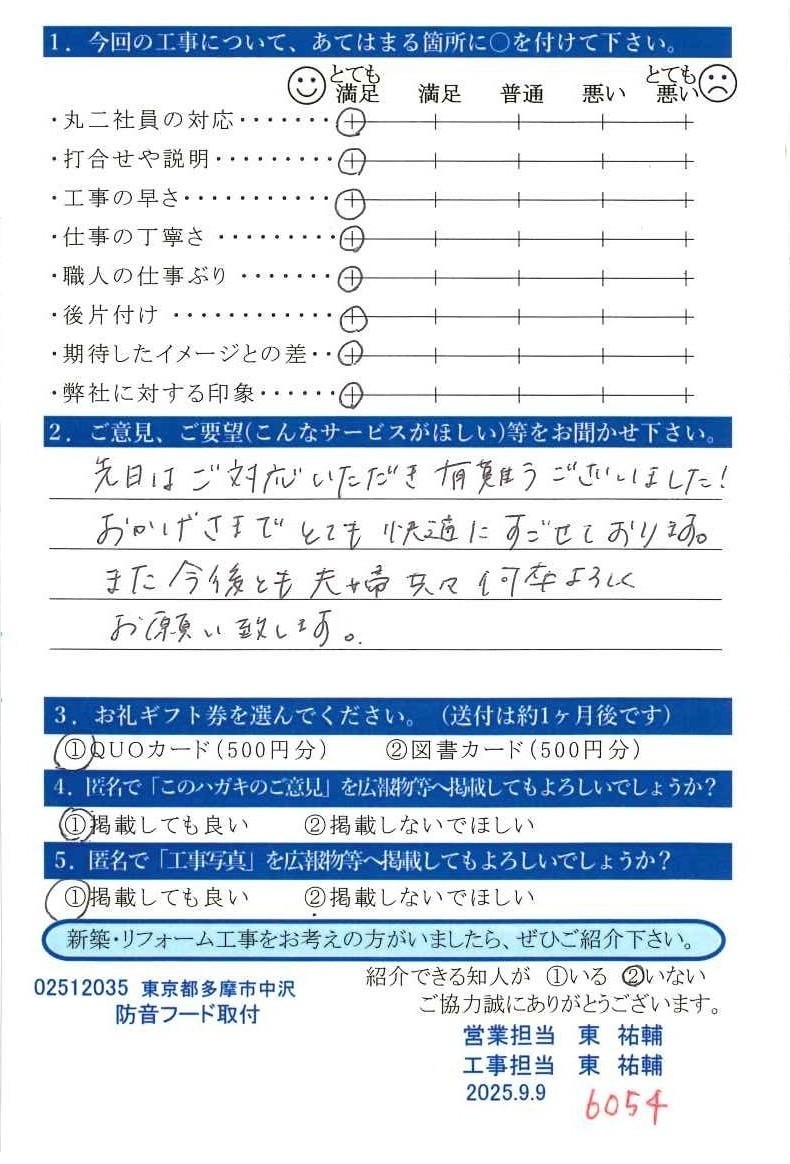 1．今回の工事について、あてはまる箇所に○を付けて下さい。
とても満足 満足 普通 悪い とても悪い
・丸二社員の対応・・・・・・・
・打合せや説明・・・・・・・・・
・工事の早さ・・・・・・・・・・・
・仕事の丁寧さ ・・・・・・・・・
・職人の仕事ぶり ・・・・・・・
・後片付け ・・・・・・・・・・・・
・期待したイメージとの差・・
・弊社に対する印象・・・・・・
2．ご意見、ご要望(こんなサービスがほしい)等をお聞かせ下さい。
先日はご対応いただき有難うございました!
おかげさまでとても快適にすごせております。
また今後とも夫婦共々何卒よろしく
お願い致します。
3．お礼ギフト券を選んでください。（送付は約1ヶ月後です）
①QUOカード(500円分) ②図書カード(500円分)
4．匿名で「このハガキのご意見」を広報物等へ掲載してもよろしいでしょうか?
①掲載しても良い ②掲載しないでほしい
5．匿名で「工事写真」を広報物等へ掲載してもよろしいでしょうか?
①掲載しても良い ②掲載しないでほしい
新築・リフォーム工事をお考えの方がいましたら、ぜひご紹介下さい。
紹介できる知人が ①いる ②いない
02512035 東京都多摩市中沢
ご協力誠にありがとうございます。
防音フード取付
営業担当 東 祐輔
工事担当 東 祐輔
2025.9.9
6054